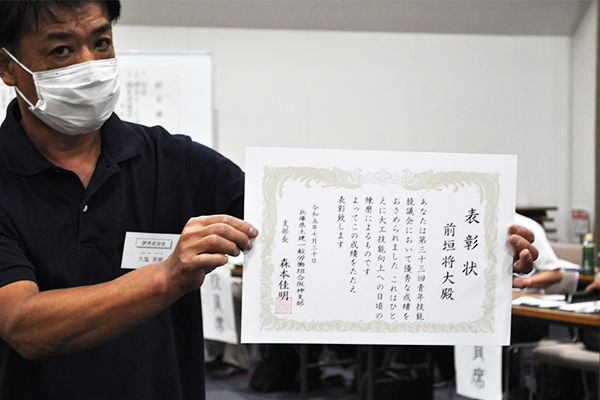 表彰状
前垣将大殿
あなたは第二十三回青年技能
競技会において優秀な成績を
おさめられました これはひと
えに大工技能向上への日頃の
練磨によるものです
よってこの成績をたたえ
表彰致します
令和五年七月三十日
兵庫県土建一般労働組合阪神支部
支部長 森本佳明
伊丹北分会
役員席
員席